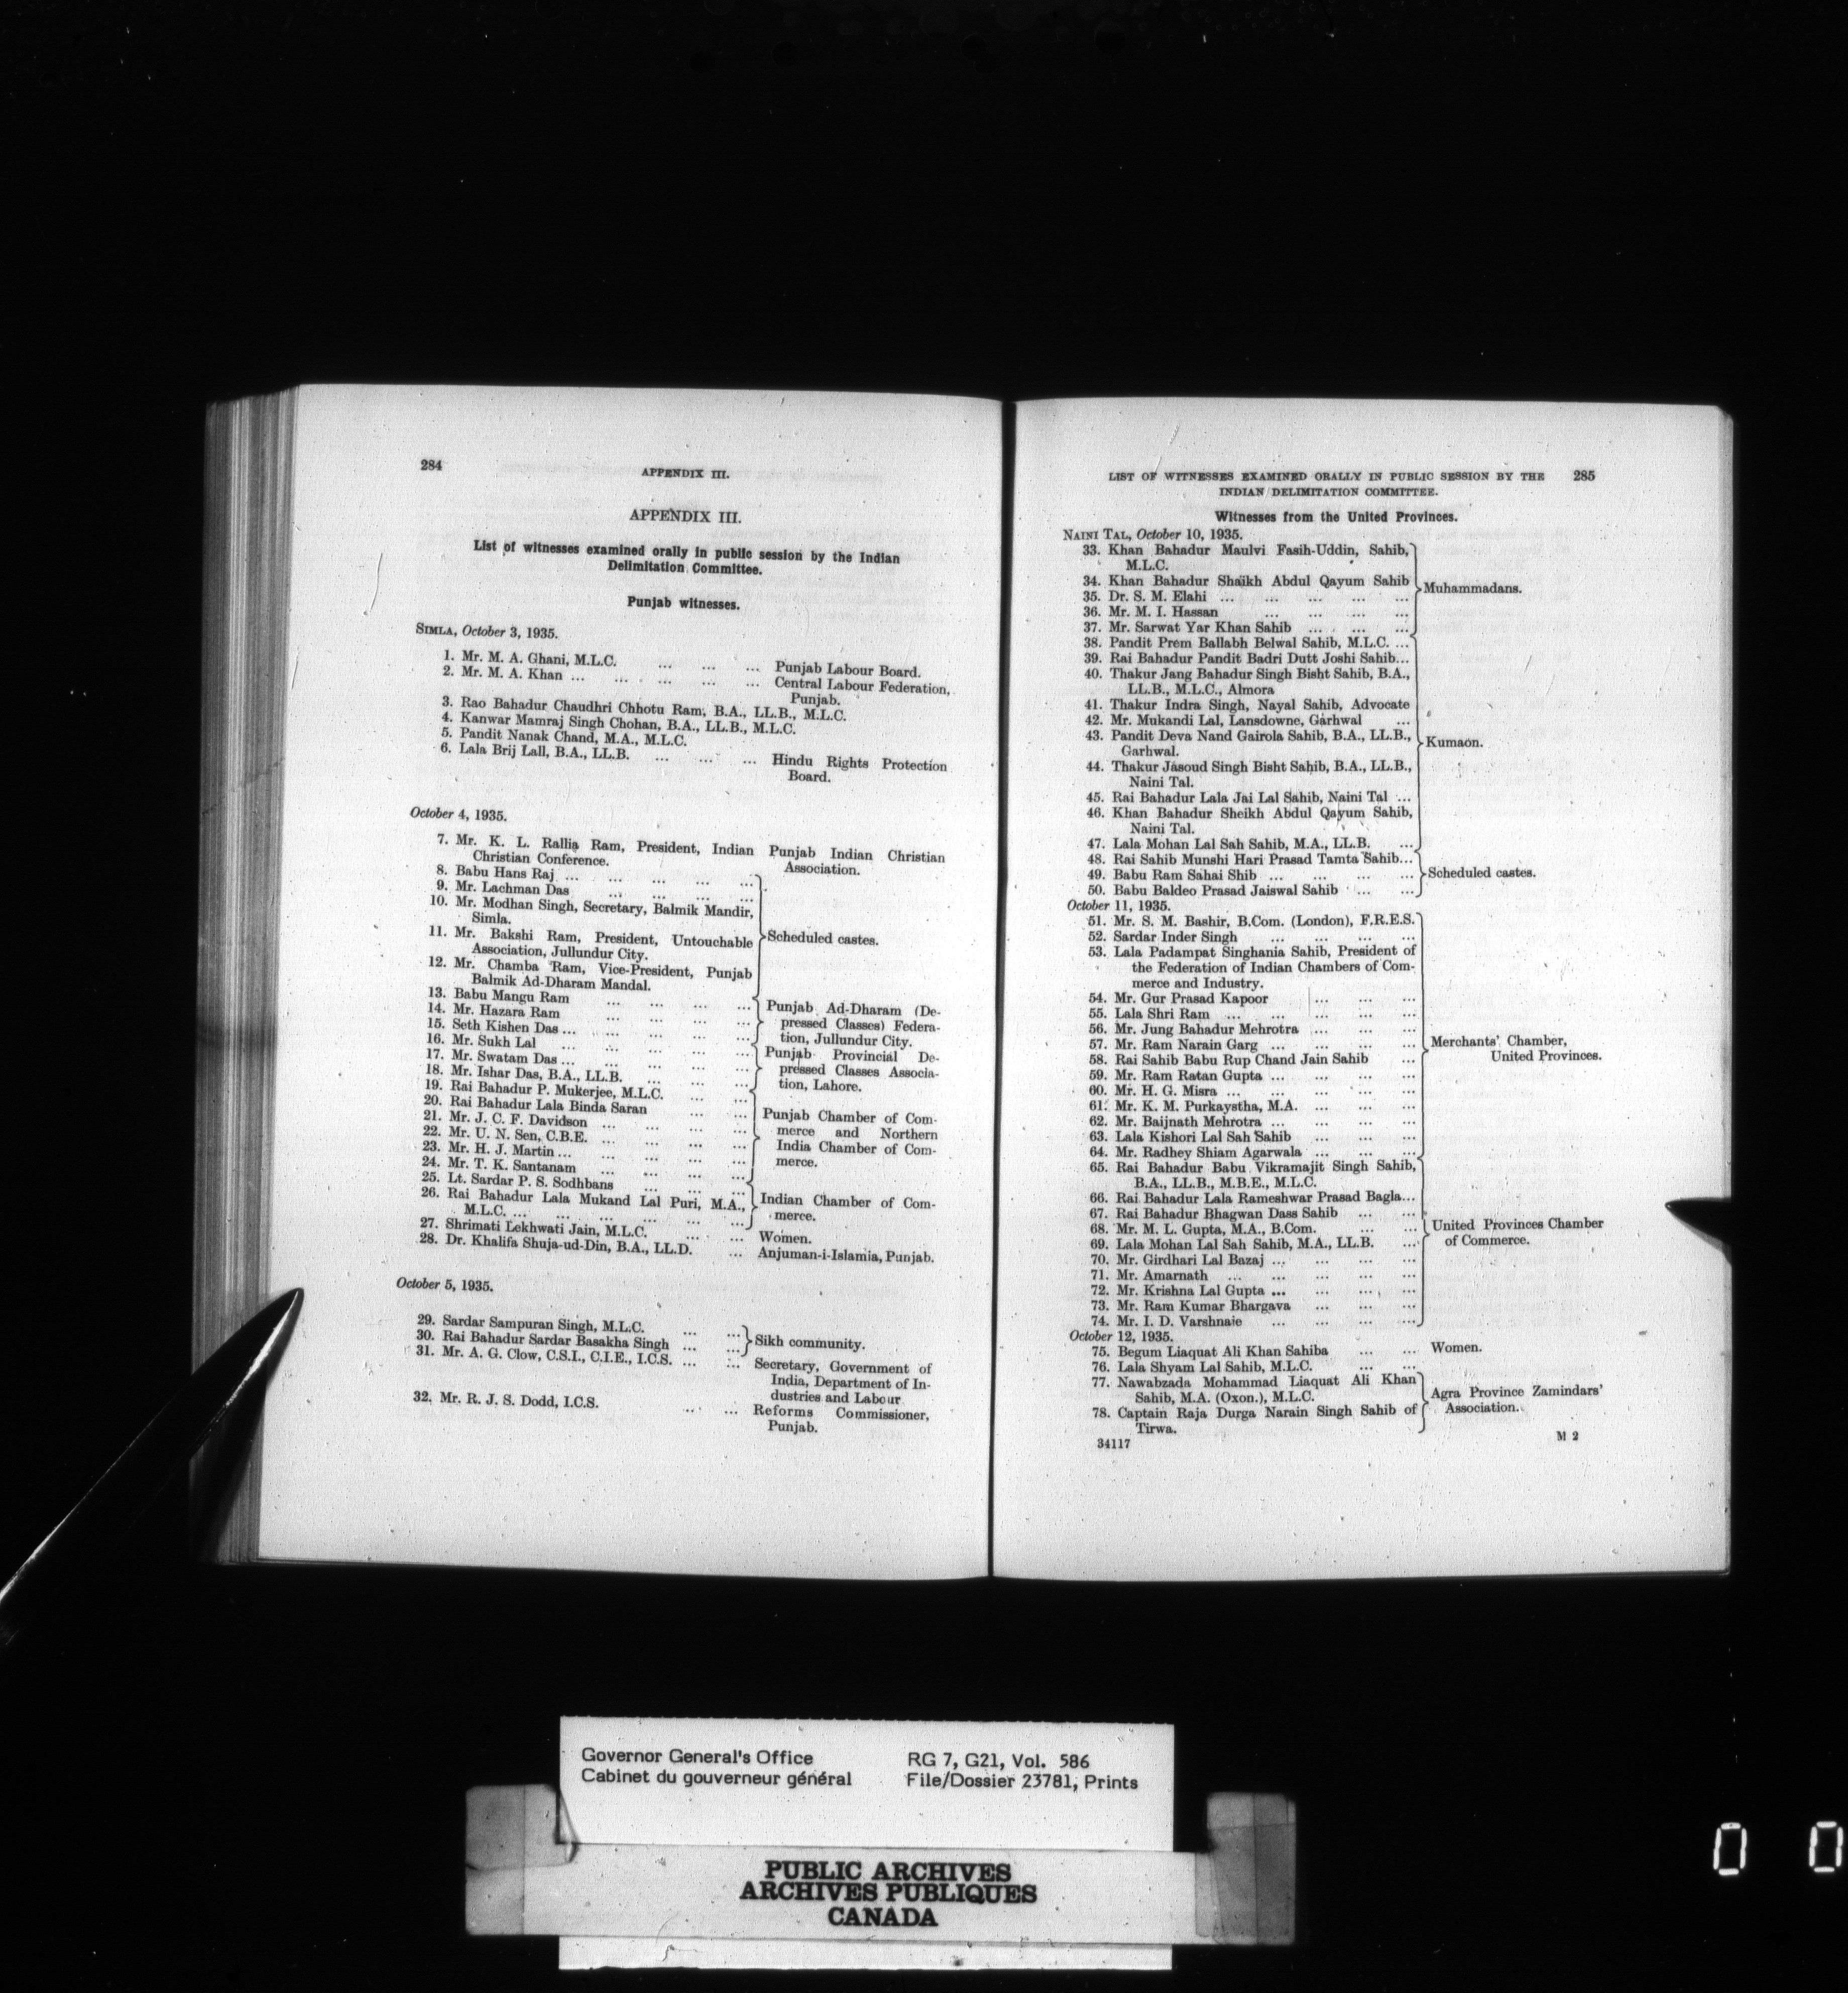 284
APPENDIX III.
APPENDIX III.
List of witnesses examined orally in public session by the Indian
Delimitation Committee.
Punjab witnesses.
SIMLA, October 3, 1935.
1. Mr. M. A. Ghani, M.L.C. ... ... ... Punjab Labour Board.
2. Mr. M. A. Khan ... ... ... ... ... Central Labour Federation,
Punjab.
3. Rao Bahadur Chaudhri Chhotu Ram, B.A., LL.B., M.L.C.
4. Kanwar Mamraj Singh Chohan, B.A., LL.B., M.L.C.
5. Pandit Nanak Chand, M.A., M.L.C.
6. Lala Brij Lall, B.A., LL.B. ... ... ... Hindu Rights Protection
Board.
October 4, 1935.
7. Mr. K. L. Rallia Ram, President, Indian Punjab Indian Christian
Christian Conference. Association.
8. Babu Hans Raj ... ... ... ... ...
9. Mr. Lachman Das ... ... ... ...
10. Mr. Modhan Singh, Secretary, Balmik Mandir,
Simla.
11. Mr. Bakshi Ram, President, Untouchable Scheduled castes.
Association, Jullundur City.
12. Mr. Chamba Ram, Vice-President, Punjab
Balmik Ad-Dharam Mandal.
13. Babu Mangu Ram ... ... ... ... Punjab Ad-Dharam (De-
14. Mr. Hazara Ram ... ... ... ... pressed Classes) Federa-
15. Seth Kishen Das ... ... ... ... ... tion, Jullundur City.
16. Mr. Sukh Lal ... ... ... ... ... Punjab Provincial De-
17. Mr. Swatam Das ... ... ... ... ... pressed Classes Associa-
18. Mr. Ishar Das, B.A., LL.B. ... ... ... tion, Lahore.
19. Rai Bahadur P. Mukerjee, M.L.C. ... ...
20. Rai Bahadur Lala Binda Saran ... ... Punjab Chamber of Com-
21. Mr. J. C. F. Davidson ... ... ... ... merce and Northern
22. Mr. U. N. Sen, C.B.E. ... ... ... ... India Chamber of Com-
23. Mr. H. J. Martin ... ... ... ... ... merce.
24. Mr. T. K. Santanam ... ... ... ...
25. Lt. Sardar P. S. Sodhbans ... ... ...
26. Rai Bahadur Lala Mukand Lal Puri, M.A., Indian Chamber of Com-
M.L.C. ... ... ... ... ... ... merce.
27. Shrimati Lekhwati Jain, M.L.C. ... ... Women.
28. Dr. Khalifa Shuja-ud-Din, B.A., LL.D. ... Anjuman-i-Islamia, Punjab.
October 5, 1935.
29. Sardar Sampuran Singh, M.L.C. ... ...
30. Rai Bahadur Sardar Basakha Singh ... ... Sikh community.
31. Mr. A. G. Clow, C.S.I., C.I.E., I.C.S. ... ... Secretary, Government of
India, Department of In-
dustries and Labour
32. Mr. R. J. S. Dodd, I.C.S. ... ... Reforms Commissioner,
Punjab.
LIST OF WITNESSES EXAMINED ORALLY IN PUBLIC SESSION BY THE 285
INDIAN DELIMITATION COMMITTEE.
Witnesses from the United Provinces.
NAINI TAL, October 10, 1935.
33. Khan Bahadur Maulvi Fasih-Uddin, Sahib,
M.L.C.
34. Khan Bahadur Shaikh Abdul Qayum Sahib Muhammadans.
35. Dr. S. M. Elahi ... ... ... ... ...
36. Mr. M. I. Hassan ... ... ... ...
37. Mr. Sarwat Yar Khan Sahib ... ... ...
38. Pandit Prem Ballabh Belwal Sahib, M.L.C. ...
39. Rai Bahadur Pandit Badri Dutt Joshi Sahib...
40. Thakur Jang Bahadur Singh Bisht Sahib, B.A.,
LL.B., M.L.C., Almora
41. Thakur Indra Singh, Nayal Sahib, Advocate
42. Mr. Mukandi Lal, Lansdowne, Garhwal ...
43. Pandit Deva Nand Gairola Sahib, B.A., LL.B., Kumaon.
Garhwal.
44. Thakur Jasoud Singh Bisht Sahib, B.A., LL.B.,
Naini Tal.
45. Rai Bahadur Lala Jai Lal Sahib, Naini Tal ...
46. Khan Bahadur Sheikh Abdul Qayum Sahib,
Naini Tal.
47. Lala Mohan Lal Sah Sahib, M.A., LL.B. ...
48. Rai Sahib Munshi Hari Prasad Tamta Sahib...
49. Babu Ram Sahai Shib ... ... ... ... Scheduled castes.
50. Babu Baldeo Prasad Jaiswal Sahib ... ...
October 11, 1935.
51. Mr. S. M. Bashir, B.Com. (London), F.R.E.S.
52. Sardar Inder Singh ... ... ... ...
53. Lala Padampat Singhania Sahib, President of
the Federation of Indian Chambers of Com-
merce and Industry.
54. Mr. Gur Prasad Kapoor ... ... ...
55. Lala Shri Ram ... ... ... ... ...
56. Mr. Jung Bahadur Mehrotra ... ... ...
57. Mr. Ram Narain Garg ... ... ... ... Merchants' Chamber,
58. Rai Sahib Babu Rup Chand Jain Sahib ... United Provinces.
59. Mr. Ram Ratan Gupta ... ... ... ...
60. Mr. H. G. Misra ... ... ... ... ...
61. Mr. K. M. Purkaystha, M.A. ... ... ...
62. Mr. Baijnath Mehrotra ... ... ... ...
63. Lala Kishori Lal Sah Sahib ... ... ...
64. Mr. Radhey Shiam Agarwala ... ... ...
65. Rai Bahadur Babu Vikramajit Singh Sahib,
B.A., LL.B., M.B.E., M.L.C.
66. Rai Bahadur Lala Rameshwar Prasad Bagla...
67. Rai Bahadur Bhagwan Dass Sahib ... ...
68. Mr. M. L. Gupta, M.A., B.Com. ... ... United Provinces Chamber
69. Lala Mohan Lal Sah Sahib, M.A., LL.B. ... of Commerce.
70. Mr. Girdhari Lal Bazaj ... ... ... ...
71. Mr. Amarnath ... ... ... ... ...
72. Mr. Krishna Lal Gupta ... ... ... ...
73. Mr. Ram Kumar Bhargava ... ... ...
74. Mr. I. D. Varshnaie ... ... ... ...
October 12, 1935.
75. Begum Liaquat Ali Khan Sahiba ... ... Women.
76. Lala Shyam Lal Sahib, M.L.C. ... ...
77. Nawabzada Mohammad Liaquat Ali Khan
Sahib, M.A. (Oxon.), M.L.C. Agra Province Zamindars'
78. Captain Raja Durga Narain Singh Sahib of Association.
Tirwa.
34117 M 2
Governor General's Office RG 7, G21, Vol. 586
Cabinet du gouverneur général File/Dossier 23781, Prints
PUBLIC ARCHIVES
ARCHIVES PUBLIQUES
CANADA
0 0